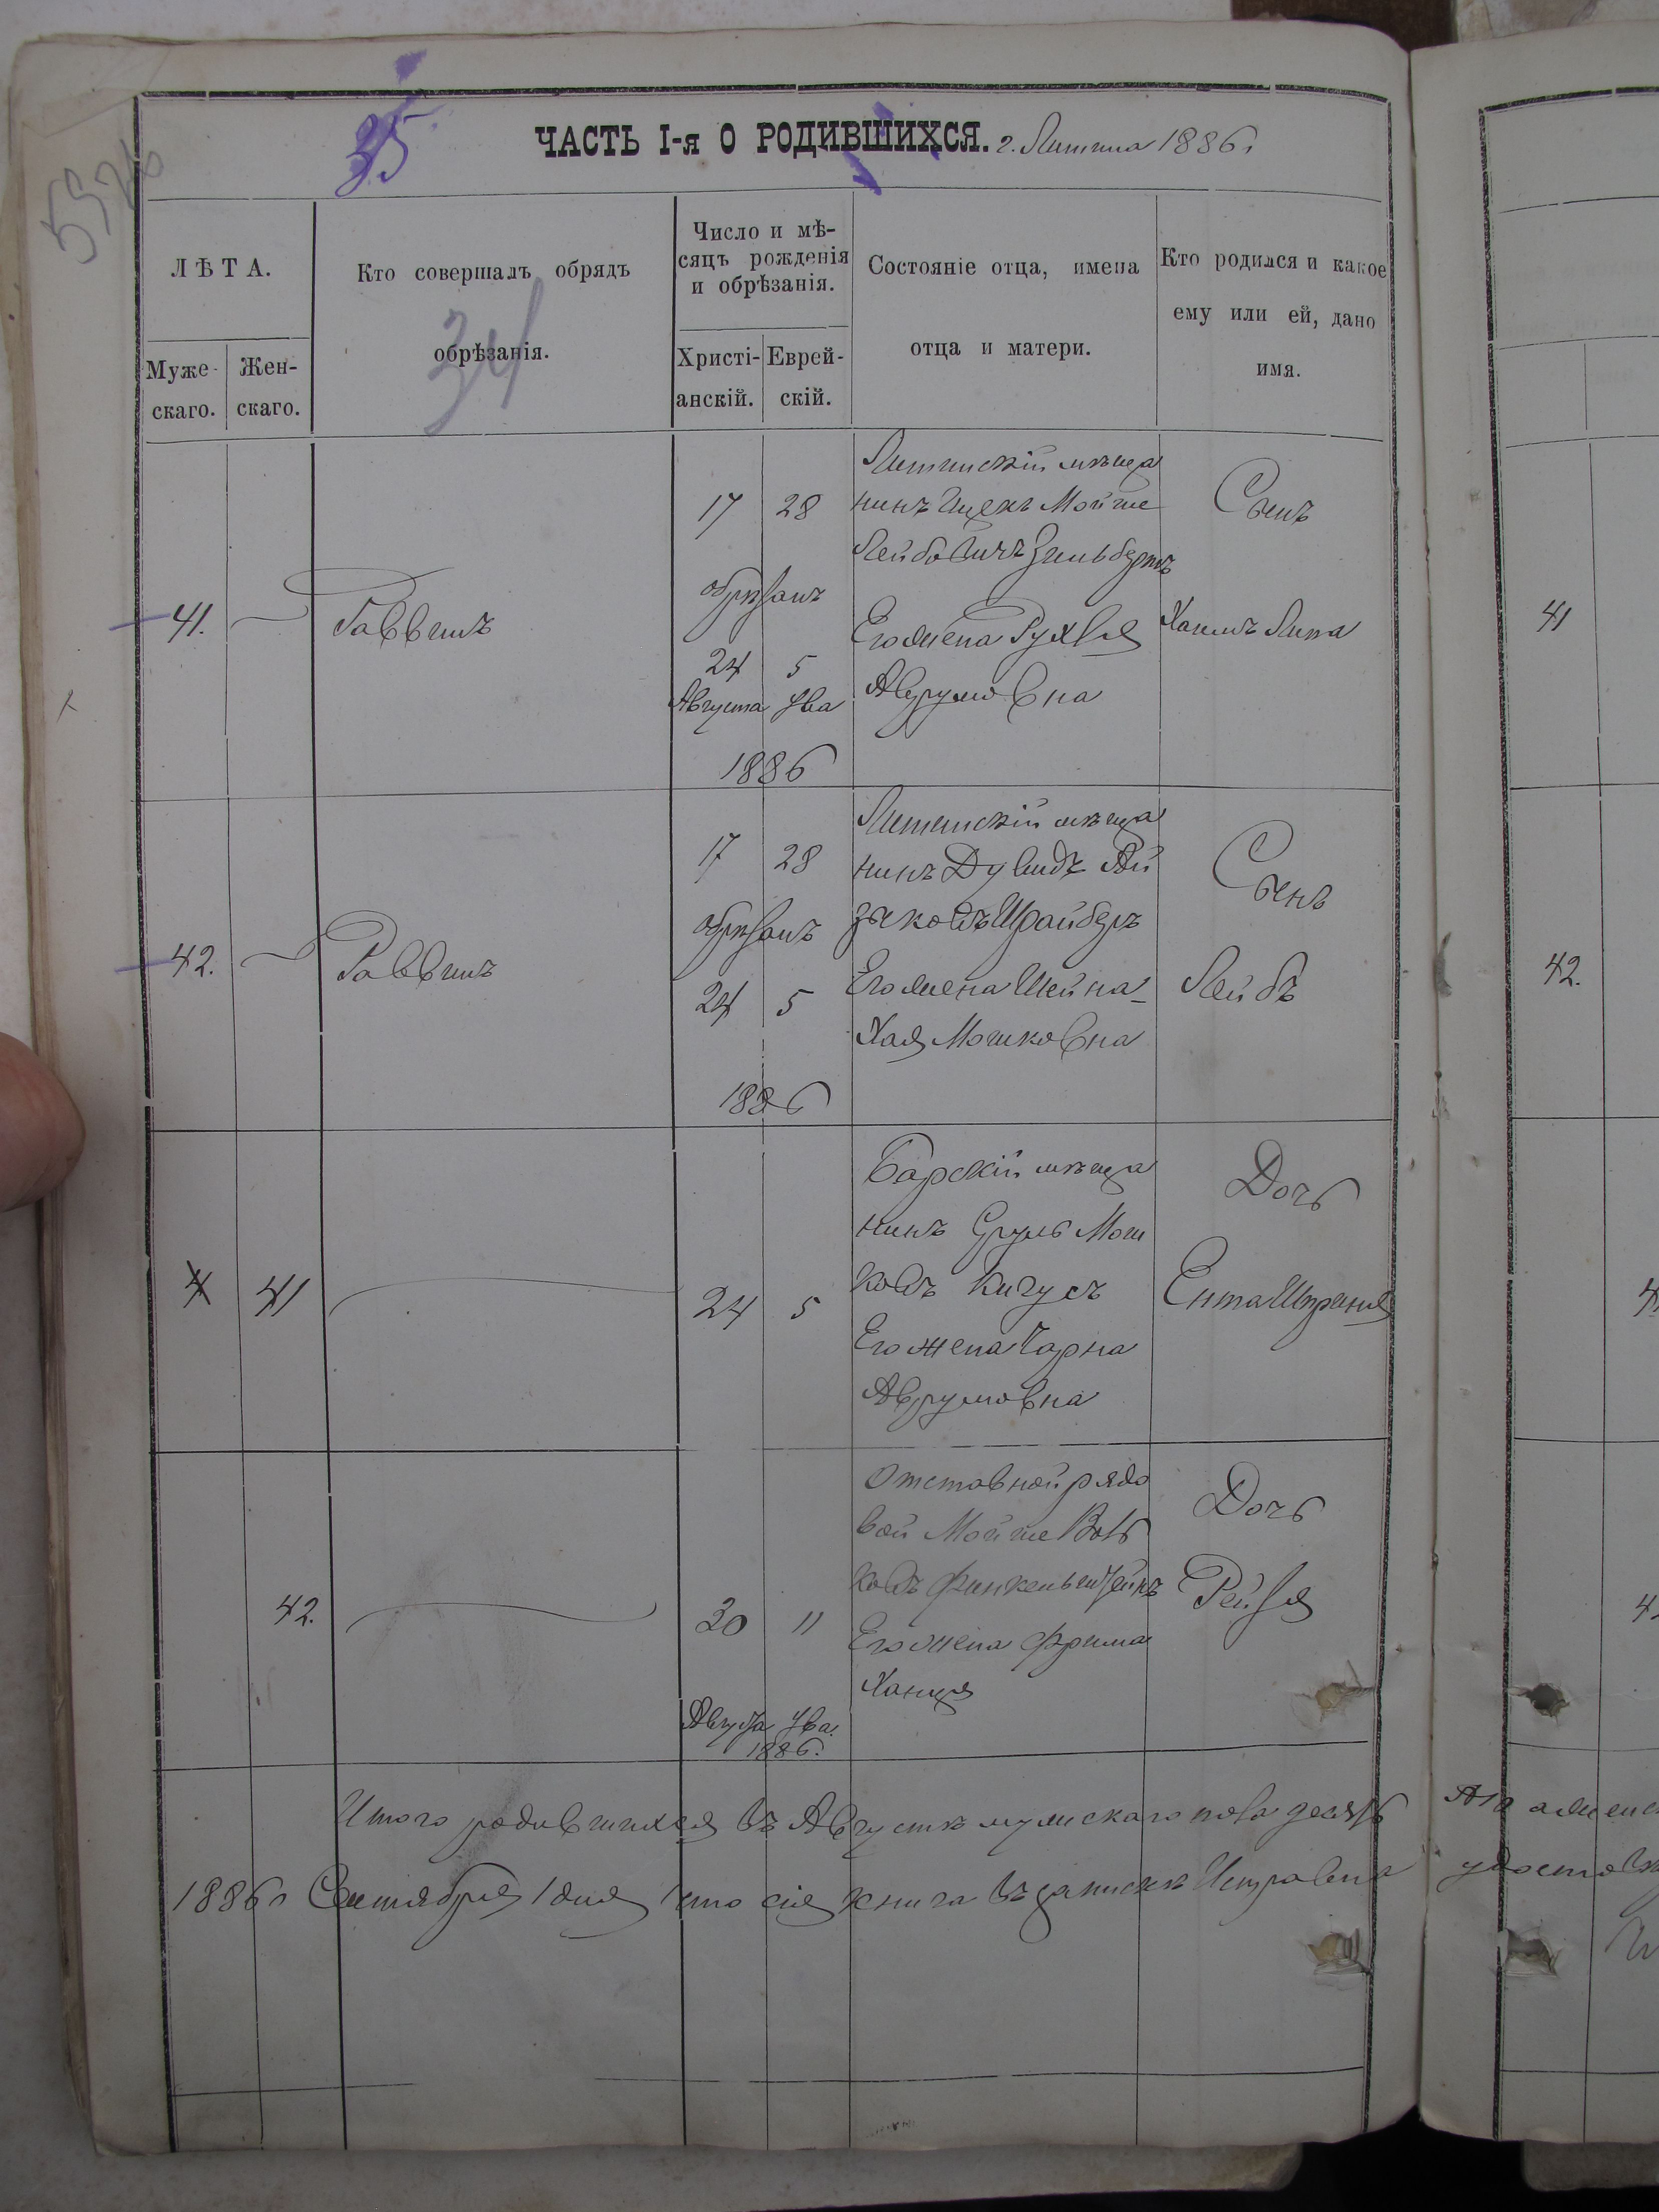 5526
35
ЧАСТЬ I-я О РОДИВШИХСЯ. г. Литина 1886 г.
ЛѢТА.
Муже-
скаго.
Жен-
скаго.
Кто совершалъ обрядъ
обрѣзанія.
34
Число и мѣ-
сяцъ рожденія
и обрѣзанія.
Христі-
анскій.
Еврей-
скій.
Состояніе отца, имена
отца и матери.
Кто родился и какое
ему или ей, дано
имя.
41.
Раввинъ
17 28
обрѣзанъ
24 5
Августа
1886
Литинскій мѣща
нинъ Ицекъ Мойше
Лейбовичъ Зильберъ
Его жена Рухля
Аврумовна
Сынъ
Хаимъ Липа
41
42.
Раввинъ
17 28
обрѣзанъ
24 5
1886
Литинскій мѣща
нинъ Дувидъ Ай
зыковъ Шрайберъ
Его жена Шейна-
Хая Мошковна
Сынъ
Лейбъ
42.
41
24 5
Барскій мѣща
нинъ Сруль Мош
ковъ Кигусъ
Его жена Чарна
Аврумовна
Дочь
Ента Шпринця
42.
30 11
Августа
1886.
Отставной рядо
вой Мойше Воль
ковъ Финкельштейнъ
Его жена Фрима
Ханця
Дочь
Рейзя
Итого родившихся въ Августѣ мужскаго пола десять
1886 г Сентября 1 дня что сія книга въ запискѣ Исправна